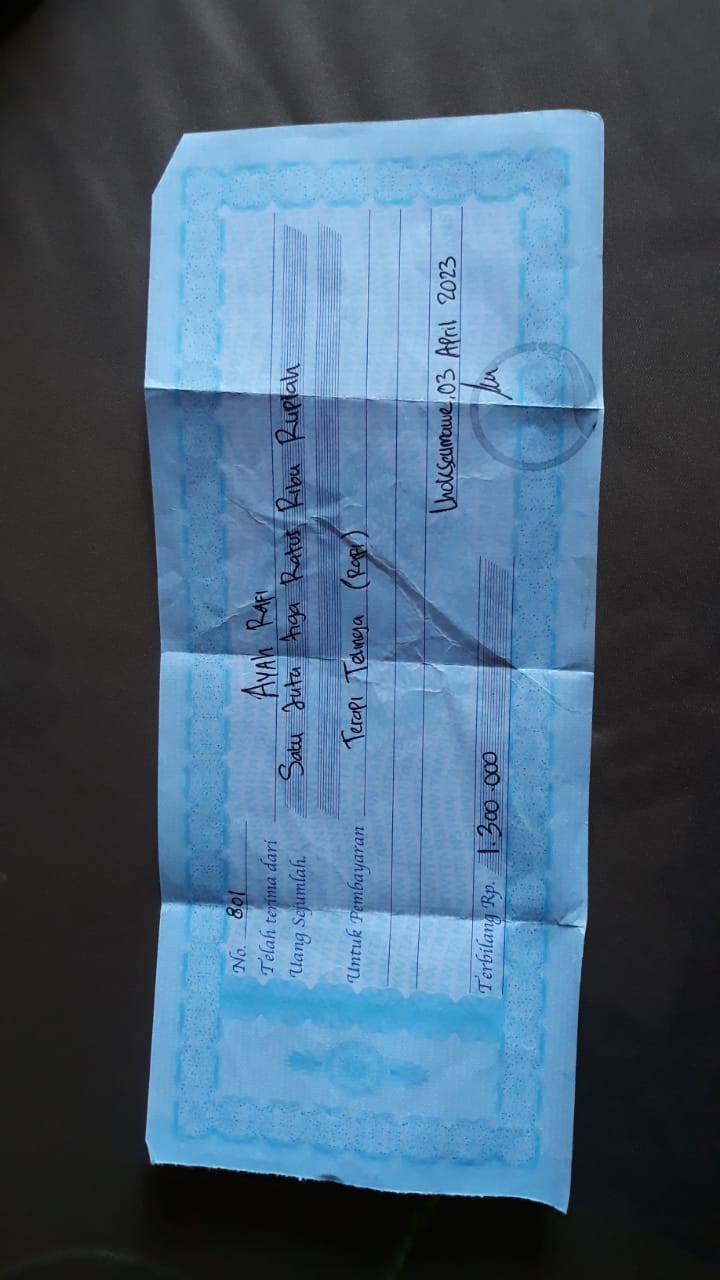 No. 801
Telah terima dari AYAH RAFI
Uang Sejumlah. Satu Juta tiga Ratus Ribu Rupiah
Untuk Pembayaran Terapi Telinga (Rafi)
Lhokseumawe, 03 April 2023
Terbilang Rp. 1.300.000